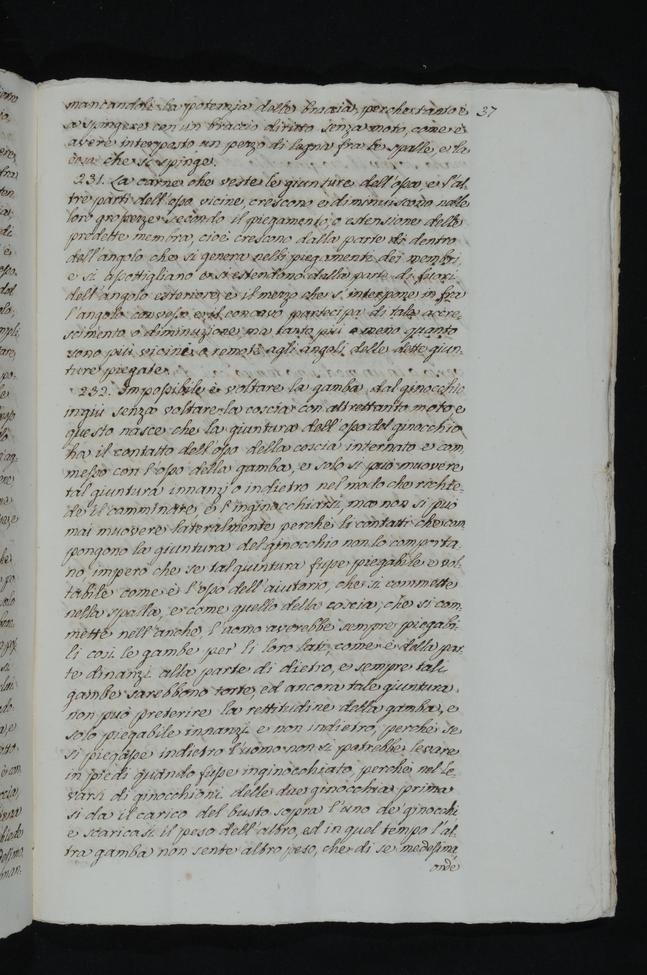 mancandole la potenzia delle braccia, perche tanto è 37
a spingere con un braccio diritto senza moto, come è
avere interposto un pezo di legno fra le spalle, e la
cosa che si spinge.
231. La carne che veste le giunture dell'ossa e l'al
tre parti dell'ossa vicine, crescono e diminuiscono nelle
loro grossezze secondo il piegamento, o estensione delle
predette membra, cioè crescono dalla parte di dentro
dell'angolo che si genera nelle piegamente dei membri,
e si assottigliano e si estendono dalla parte di fuori
dell'angolo esteriore, e il mezo che s'interpone in fra
l'angolo convesso, e il concavo partecipa di tale accre,
scimento, o diminuzione, ma tanto più o meno quanto
sono più vicini, o remoti agli angoli delle dette giun,
ture piegate.
232. Impossibile è voltare la gamba dal ginocchio
ingiù senza voltare la coscia con altrettanto moto e
questo nasce che la giuntura dell'osso del ginocchio
ha il contatto dell'osso della coscia internato e com,
messo con l'osso della gamba, e solo si può muovere
tal giuntura innanzi o indietro nel modo che richie,
de il camminare, e l'inginocchiarsi, ma non si può
mai muovere lateralmente perchè li contatti che com
pongono la giuntura del ginocchio non lo comporta,
no, imperò che se tal giuntura fusse piegabile e vol,
tabile come è l'osso dell'aiutorio, che si commette
nella spalla, e come quello della coscia, che si com,
mette nell'anche, l'uomo averebbe sempre piegabi,
li così le gambe per li loro lati, come è dalla par,
te dinanzi alla parte di dietro, e sempre tali
gambe sarebbono torte, ed ancora tale giuntura
non può preterire la rettitudine della gamba, e
solo piegabile innanzi e non indietro, perchè se
si piegasse indietro l'uomo non si potrebbe levare
in piedi quando fusse inginocchiato, perchè nel le,
varsi di ginocchioni delle due ginocchia prima
si da il carico del busto sopra l'uno de ginocchi
e scaricasi il peso dell'altro, ed in quel tempo l'al,
tra gamba non sente altro peso, che di se medesima,
onde